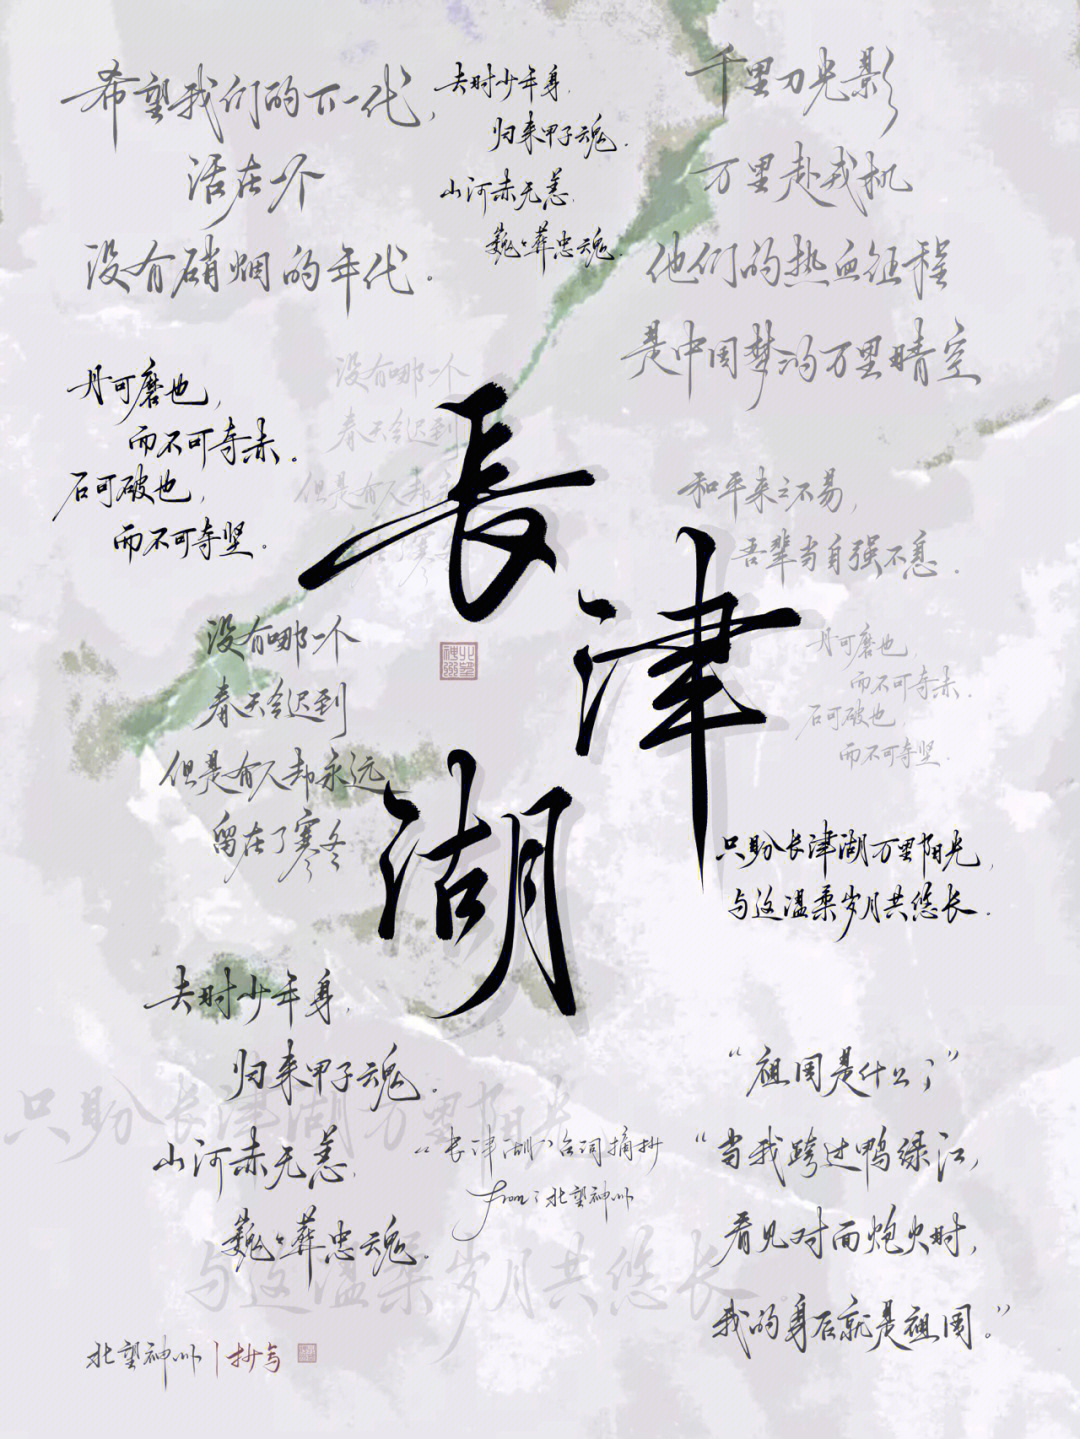 希望我们的下一代，
活在一个
没有硝烟的年代．
去时少年身．
归来甲子魂．
山河赤无恙．
巍々葬忠魂．
千里刀光影
万里赴戎机
他们的热血征程
是中国梦的万里晴空
丹可磨也，
而不可夺赤。
石可破也，
而不可夺坚．
没有哪一个
春天会迟到
但是有人却永
了寒冬
長
津
湖
和平来之不易，
吾辈当自强不息．
丹可磨也，
而不可夺赤．
石可破也，
而不可夺坚．
没有哪一个
春天会迟到
但是有人却永远
留在了寒冬
只盼长津湖万里阳光，
与这温柔岁月共悠长．
去时少年身．
归来甲子魂．
山河赤无恙．
巍々葬忠魂．
只盼长津湖万里阳光
与这温柔岁月共悠长
“长津湖”台词摘抄
from：北望神州
“祖国是什么？”
“当我跨过鸭绿江，
看见对面炮火时，
我的身后就是祖国。”
北望神州｜抄写
北望神州